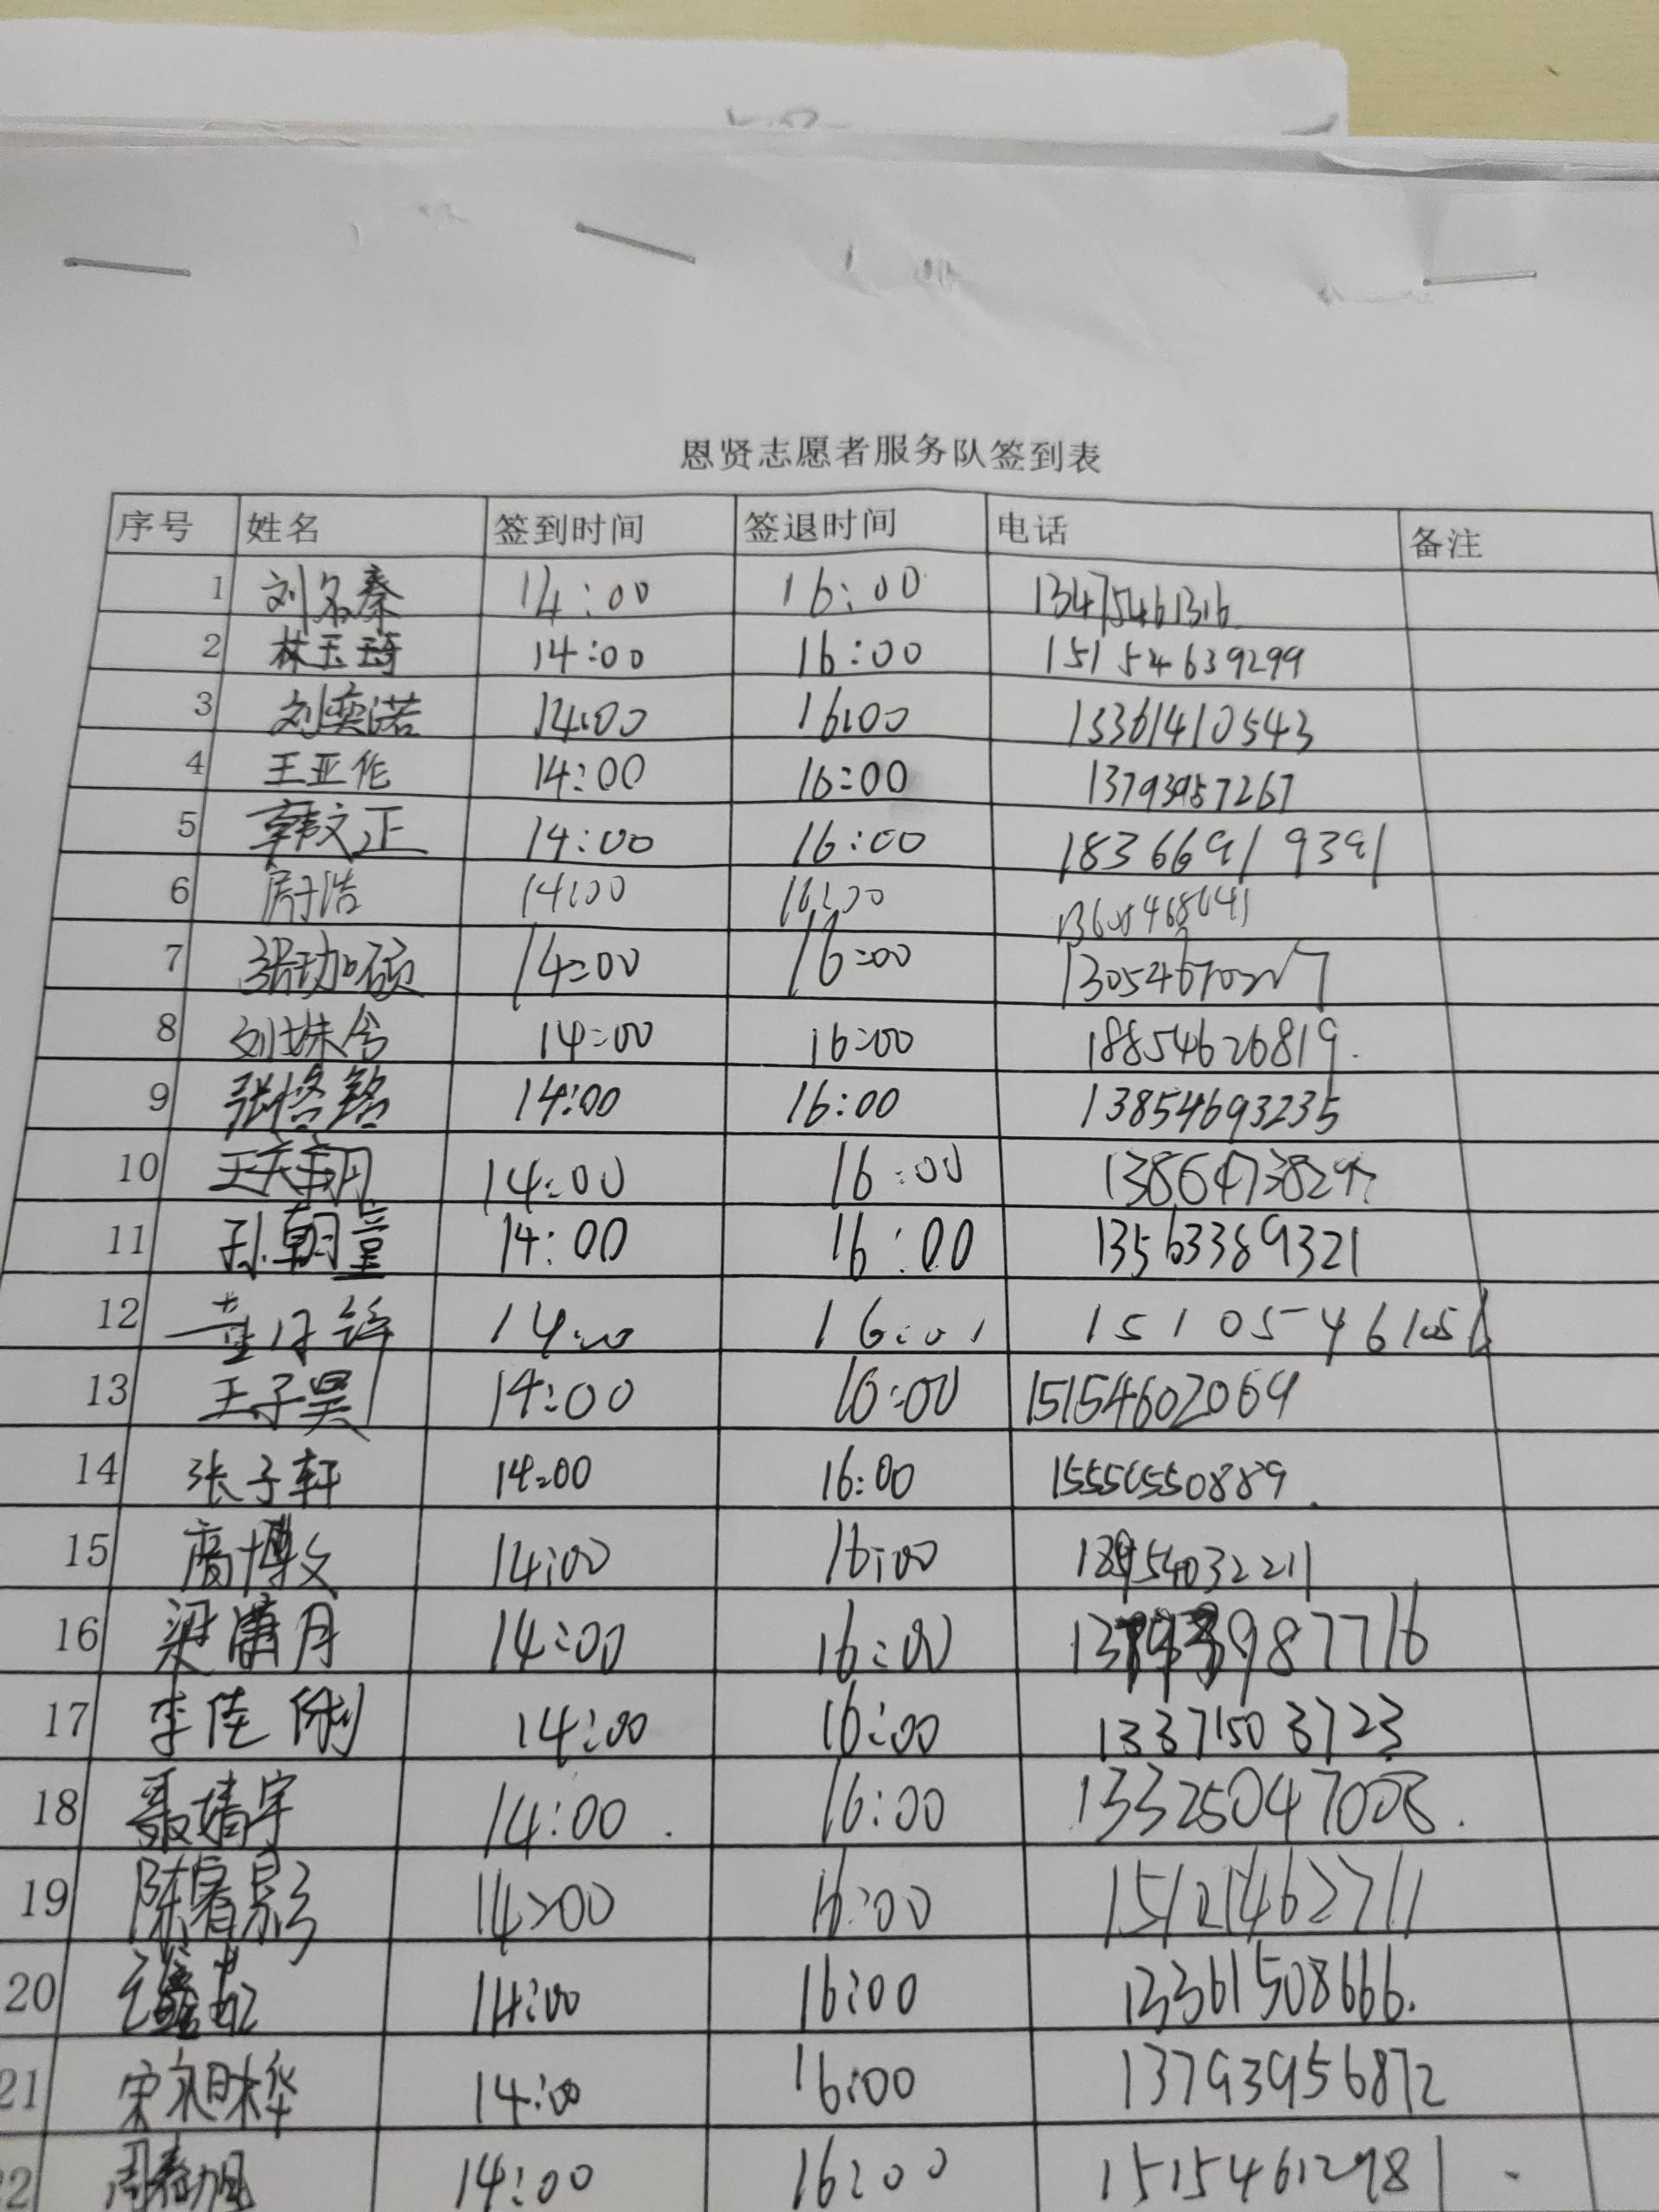 恩贤志愿者服务队签到表
序号 姓名 签到时间 签退时间 电话 备注
1 刘名秦 14:00 16:00 13475461316
2 林玉琦 14:00 16:00 15154639299
3 刘奕诺 14:00 16:00 13361410543
4 王亚伦 14:00 16:00 13793957267
5 韩文正 14:00 16:00 18366919391
6 14:00 16:00
7 张珈硕 14:00 16:00
8 刘姝含 14:00 16:00 18854626819
9 14:00 16:00 13854693235
10 14:00 16:00
11 孙朝童 14:00 16:00 13563389321
12 14:00
13 王子昊 14:00 16:00 15154602069
14 张子轩 14:00 16:00 15550550889
15 商博文 14:00 16:00
16 梁潇月 14:00 16:00
17 李佳俐 14:00 16:00 13371503723
18 聂婧宇 14:00 16:00 13325047008
19 陈睿影 14:00 16:00
20 14:00 16:00 13361508666
21 14:00 16:00 13793956872
22 14:00 16:00 15154612981